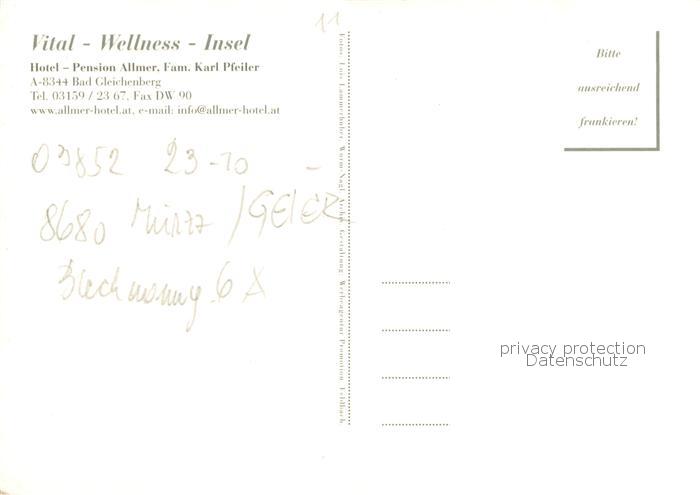 11
Vital - Wellness - Insel
Hotel – Pension Allmer, Fam. Karl Pfeiler
A-8344 Bad Gleichenberg
Tel. 03159 / 23 67, Fax DW 90
www.allmer-hotel.at, e-mail: info@allmer-hotel.at
03852 23-10
8680 Mürzz / GEIER
6 A
Fotos: Lois Lammerhuber, Werbeagentur Promotion Feldbach
Bitte
ausreichend
frankieren!
privacy protection
Datenschutz